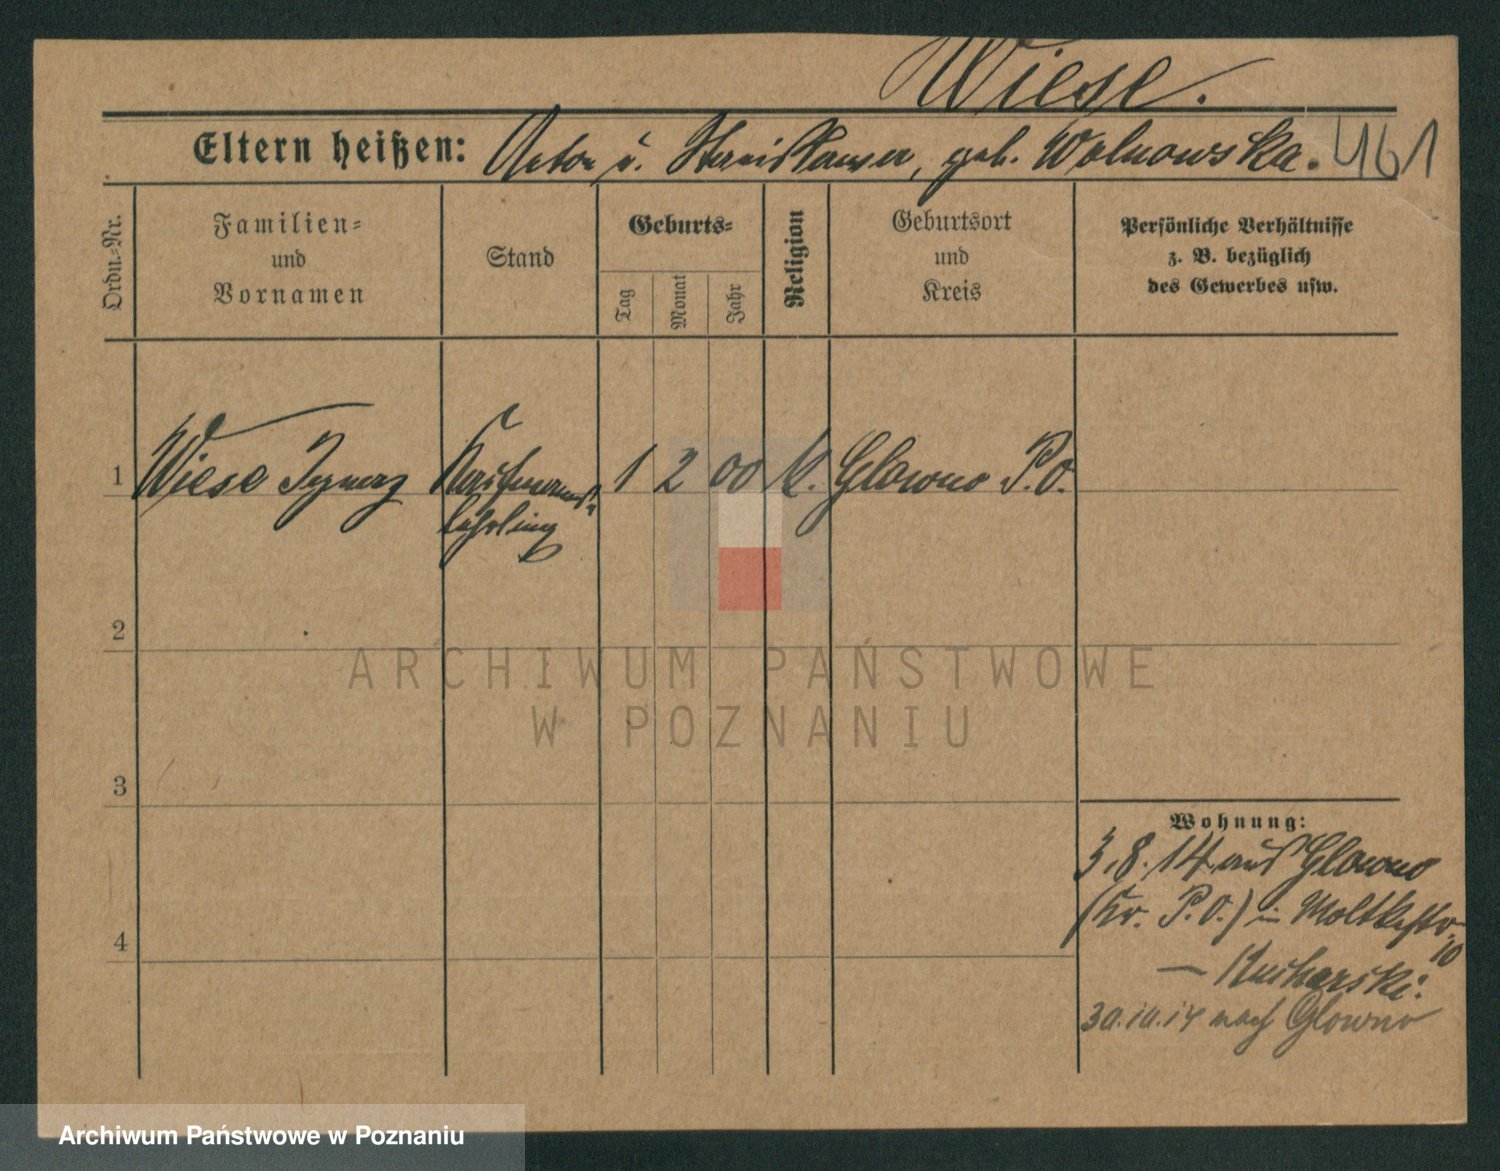 Wiese.
Eltern heißen: Anton u. Stanislawa, geb. Wolnowska. 461
Ordn.-Nr.
Familien-
und
Vornamen
Stand
Geburts-
Tag
Monat
Jahr
Religion
Geburtsort
und
Kreis
Persönliche Verhältnisse
z. B. bezüglich
des Gewerbes usw.
1 Wiese Ignaz Kaufmanns- 1 2 00 k. Glowno P.O.
lehrling
2
ARCHIWUM PAŃSTWOWE
W POZNANIU
3
Wohnung:
3.8.14 aus Glowno
(Kr. P.O.) in Moltkestr.
10
— Kucharski.
30.10.14 nach Glowno
4
Archiwum Państwowe w Poznaniu